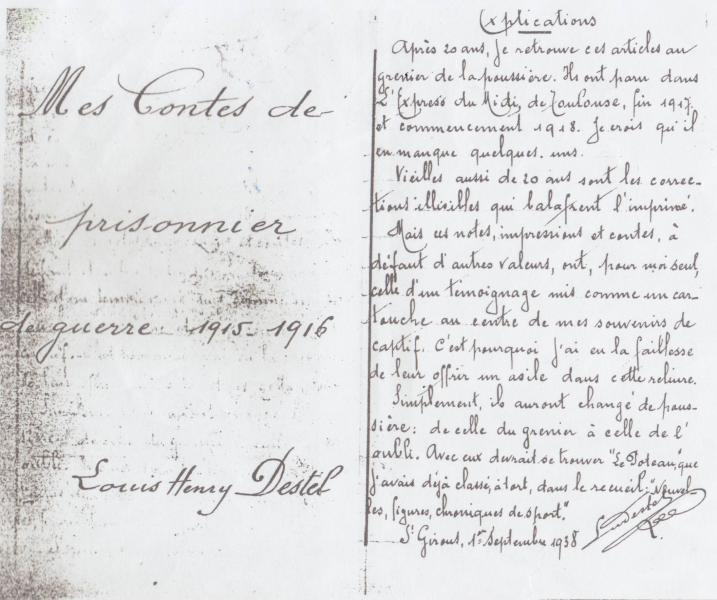 Mes Contes de
prisonnier
de guerre 1915-1916
Louis Henry Destel
Explications
Après 20 ans, je retrouve ces articles au
grenier de la poussière. Ils ont paru dans
L'Express du Midi, de Toulouse, fin 1917,
et commencement 1918. Je crois qu'il
en manque quelques-uns.
Vieilles aussi de 20 ans sont les correc-
tions illisibles qui balafrent l'imprimé.
Mais ces notes, impressions et contes, à
défaut d'autres valeurs, ont, pour moi seul,
celle d'un témoignage mis comme un car-
touche au centre de mes souvenirs de
captif. C'est pourquoi j'ai eu la faiblesse
de leur offrir un asile dans cette reliure.
Simplement, ils auront changé de pous-
sière: de celle du grenier à celle de l'
oubli. Avec eux devrait se trouver "Le Poteau", que
j'avais déjà classé, à tort, dans le recueil: "Nouvel-
les, figures, chroniques de sport."
St Girons, 1er Septembre 1938